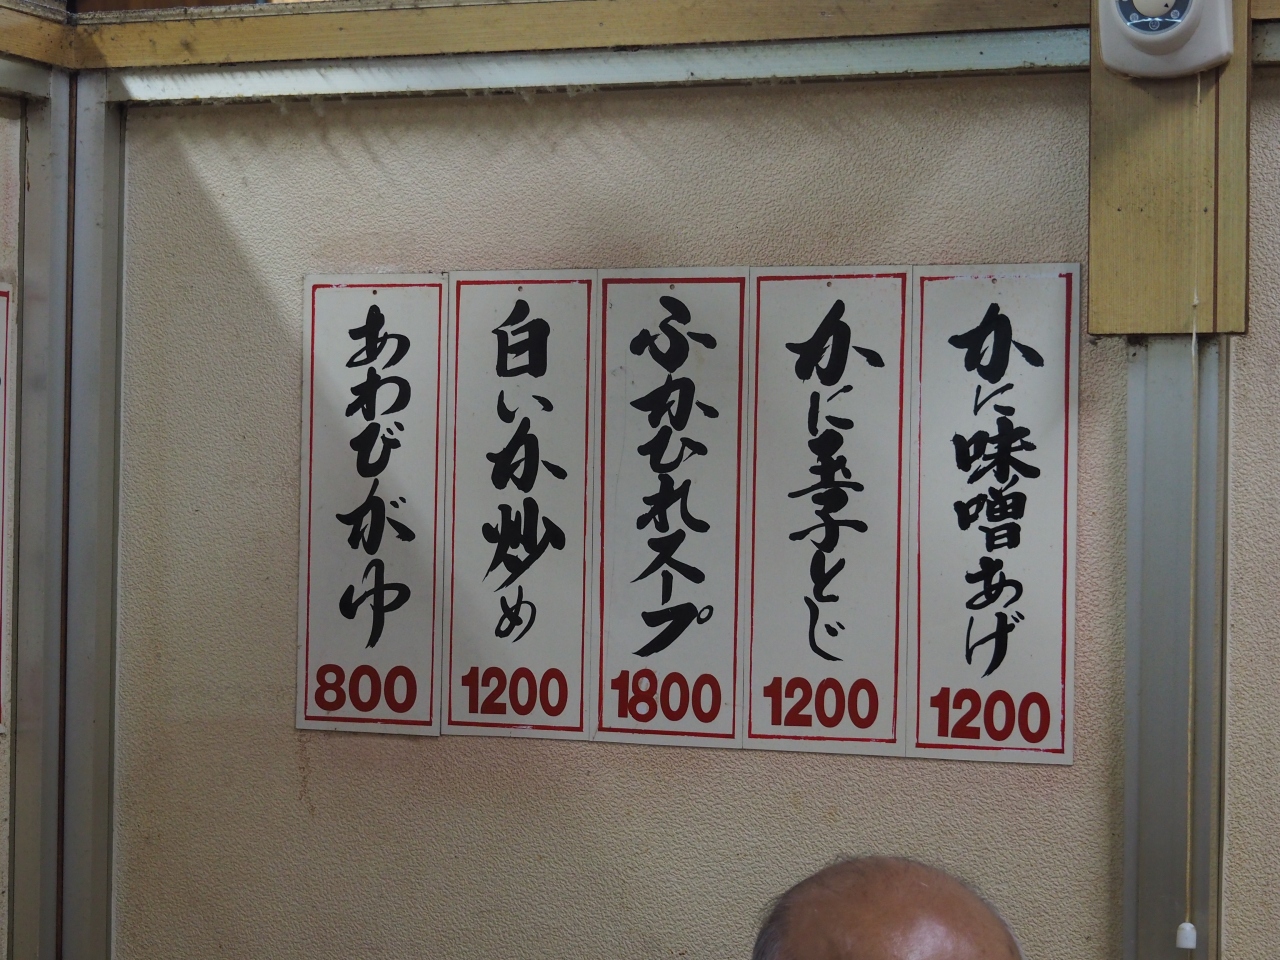 かに味噌あげ
1200
かに玉子とじ
1200
ふかひれスープ
1800
白いか炒め
1200
あわびがゆ
800